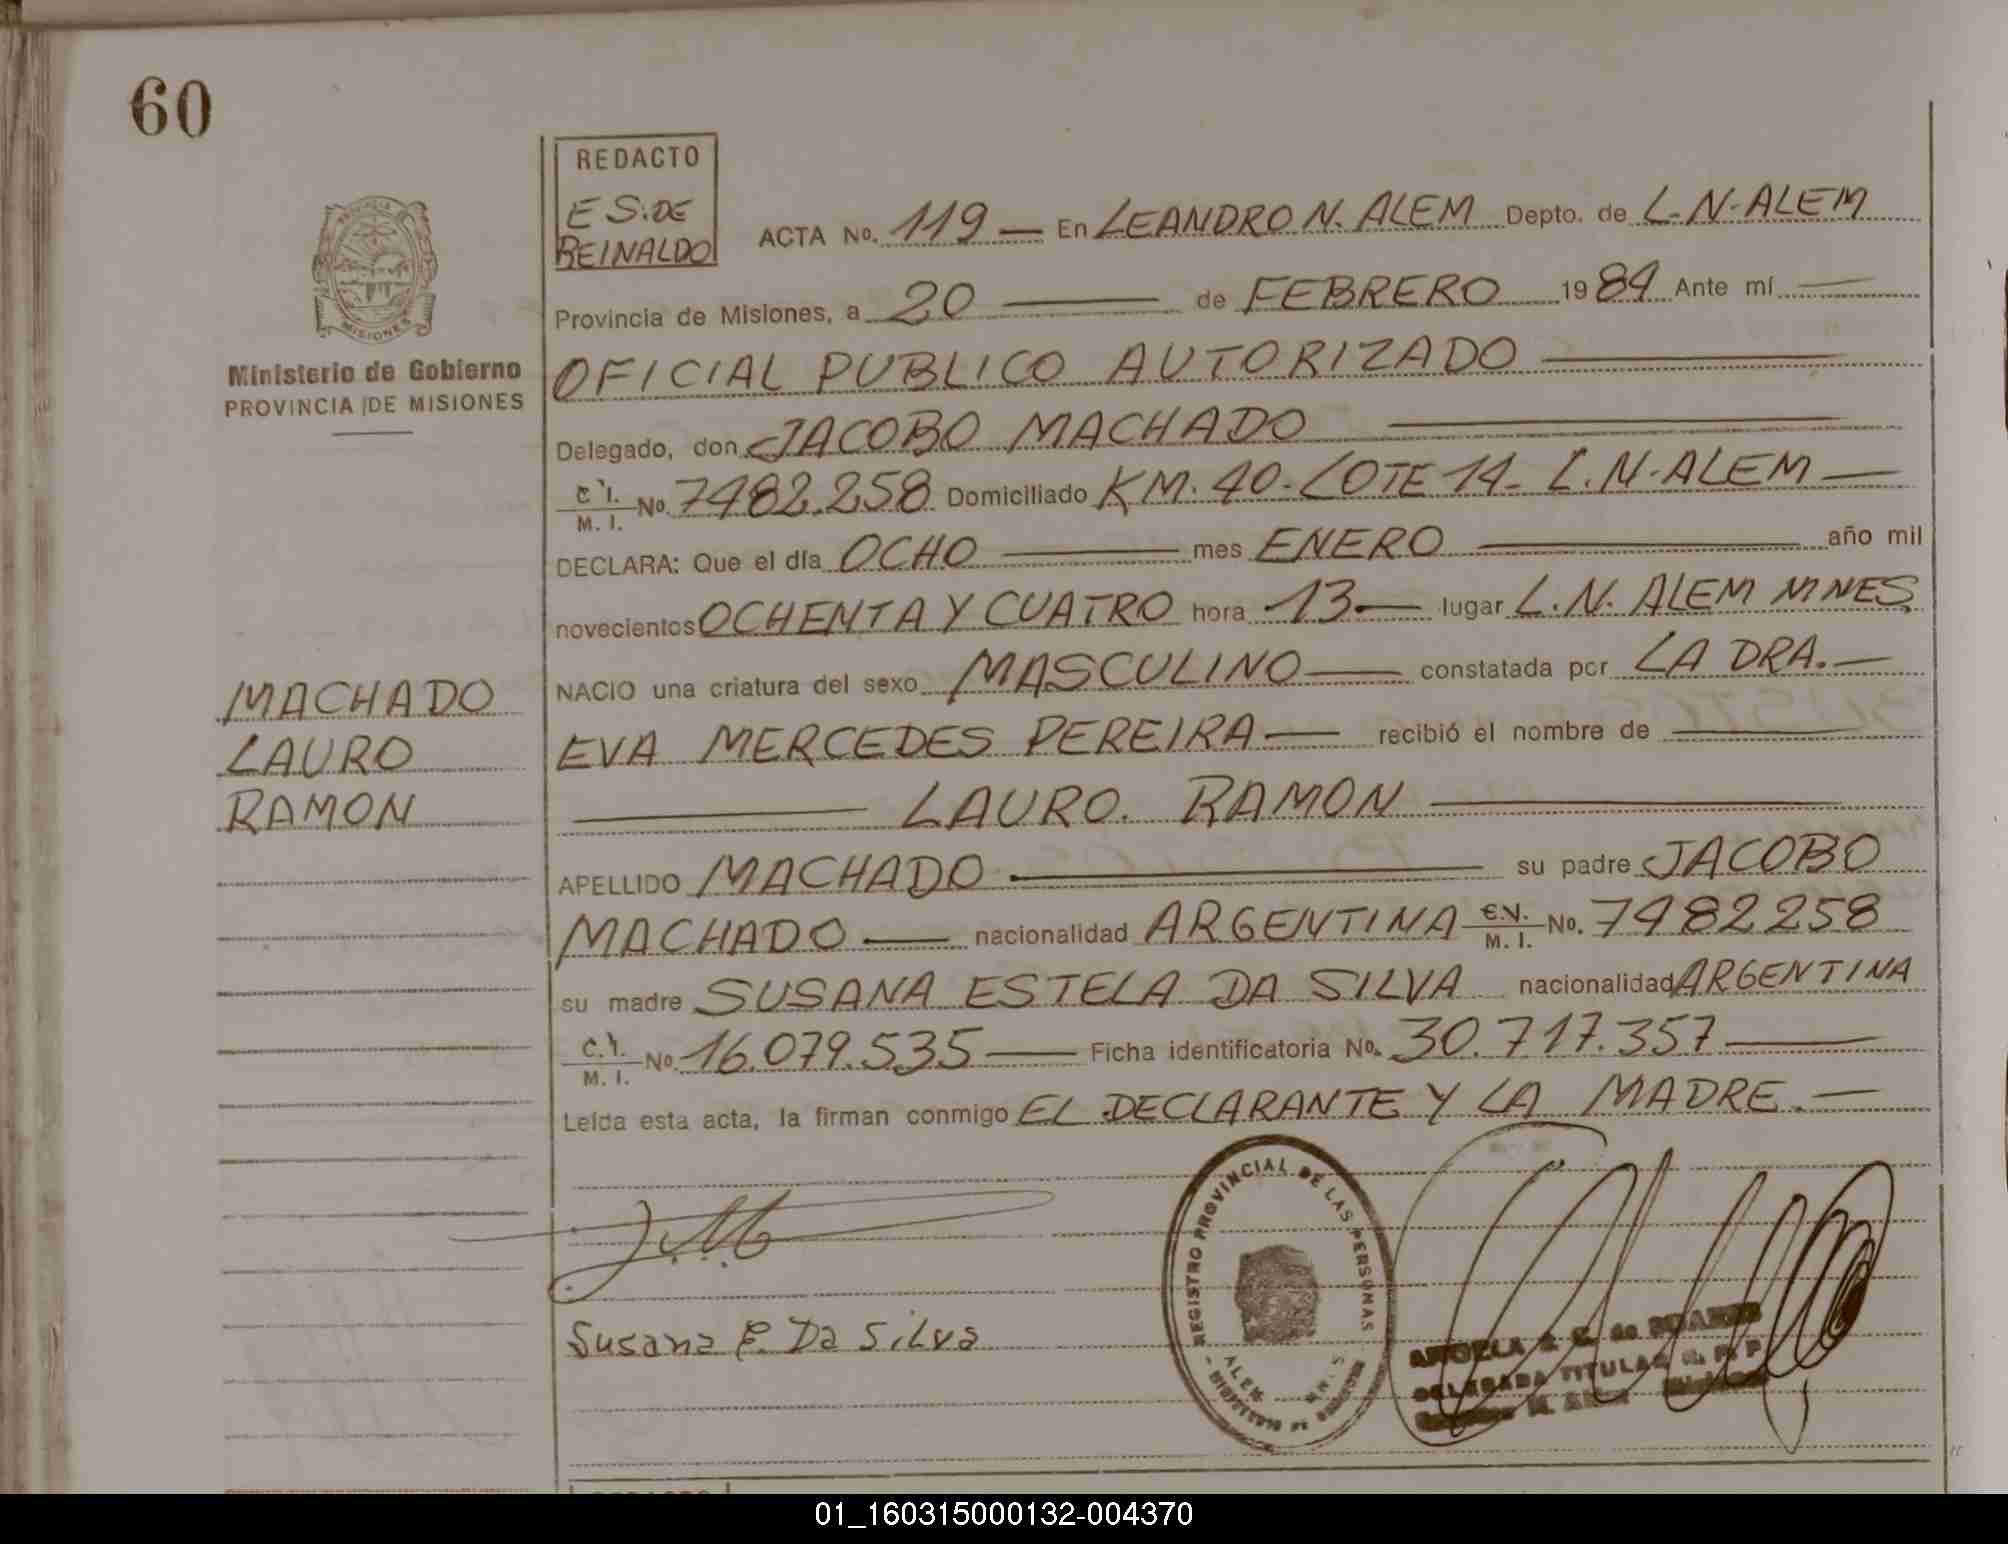 60
REDACTO
E S. DE
REINALDO
ACTA No. 119 — En LEANDRO N. ALEM Depto. de L. N. ALEM
Provincia de Misiones, a 20 — de FEBRERO 1984 Ante mí —
OFICIAL PUBLICO AUTORIZADO —
Ministerio de Gobierno
PROVINCIA DE MISIONES
Delegado, don JACOBO MACHADO —
C. I. / M. I. No. 7482.258 Domiciliado KM. 40. LOTE 14- L. N. ALEM —
DECLARA: Que el día OCHO — mes ENERO — año mil
novecientos OCHENTA Y CUATRO hora 13 — lugar L. N. ALEM MNES.
NACIO una criatura del sexo MASCULINO — constatada por LA DRA. —
EVA MERCEDES PEREIRA — recibió el nombre de —
— LAURO. RAMON —
MACHADO
LAURO
RAMON
APELLIDO MACHADO — su padre JACOBO
MACHADO — nacionalidad ARGENTINA M. I. No. 7482258
su madre SUSANA ESTELA DA SILVA nacionalidad ARGENTINA
C. I. / M. I. No. 16.079.535 — Ficha identificatoria No. 30.717.357 —
Leída esta acta, la firman conmigo EL DECLARANTE Y LA MADRE. —
Susana E. Da Silva
REGISTRO PROVINCIAL DE LAS PERSONAS
ALEM MNES
DELEGADA TITULAR R. P. P.
01_160315000132-004370